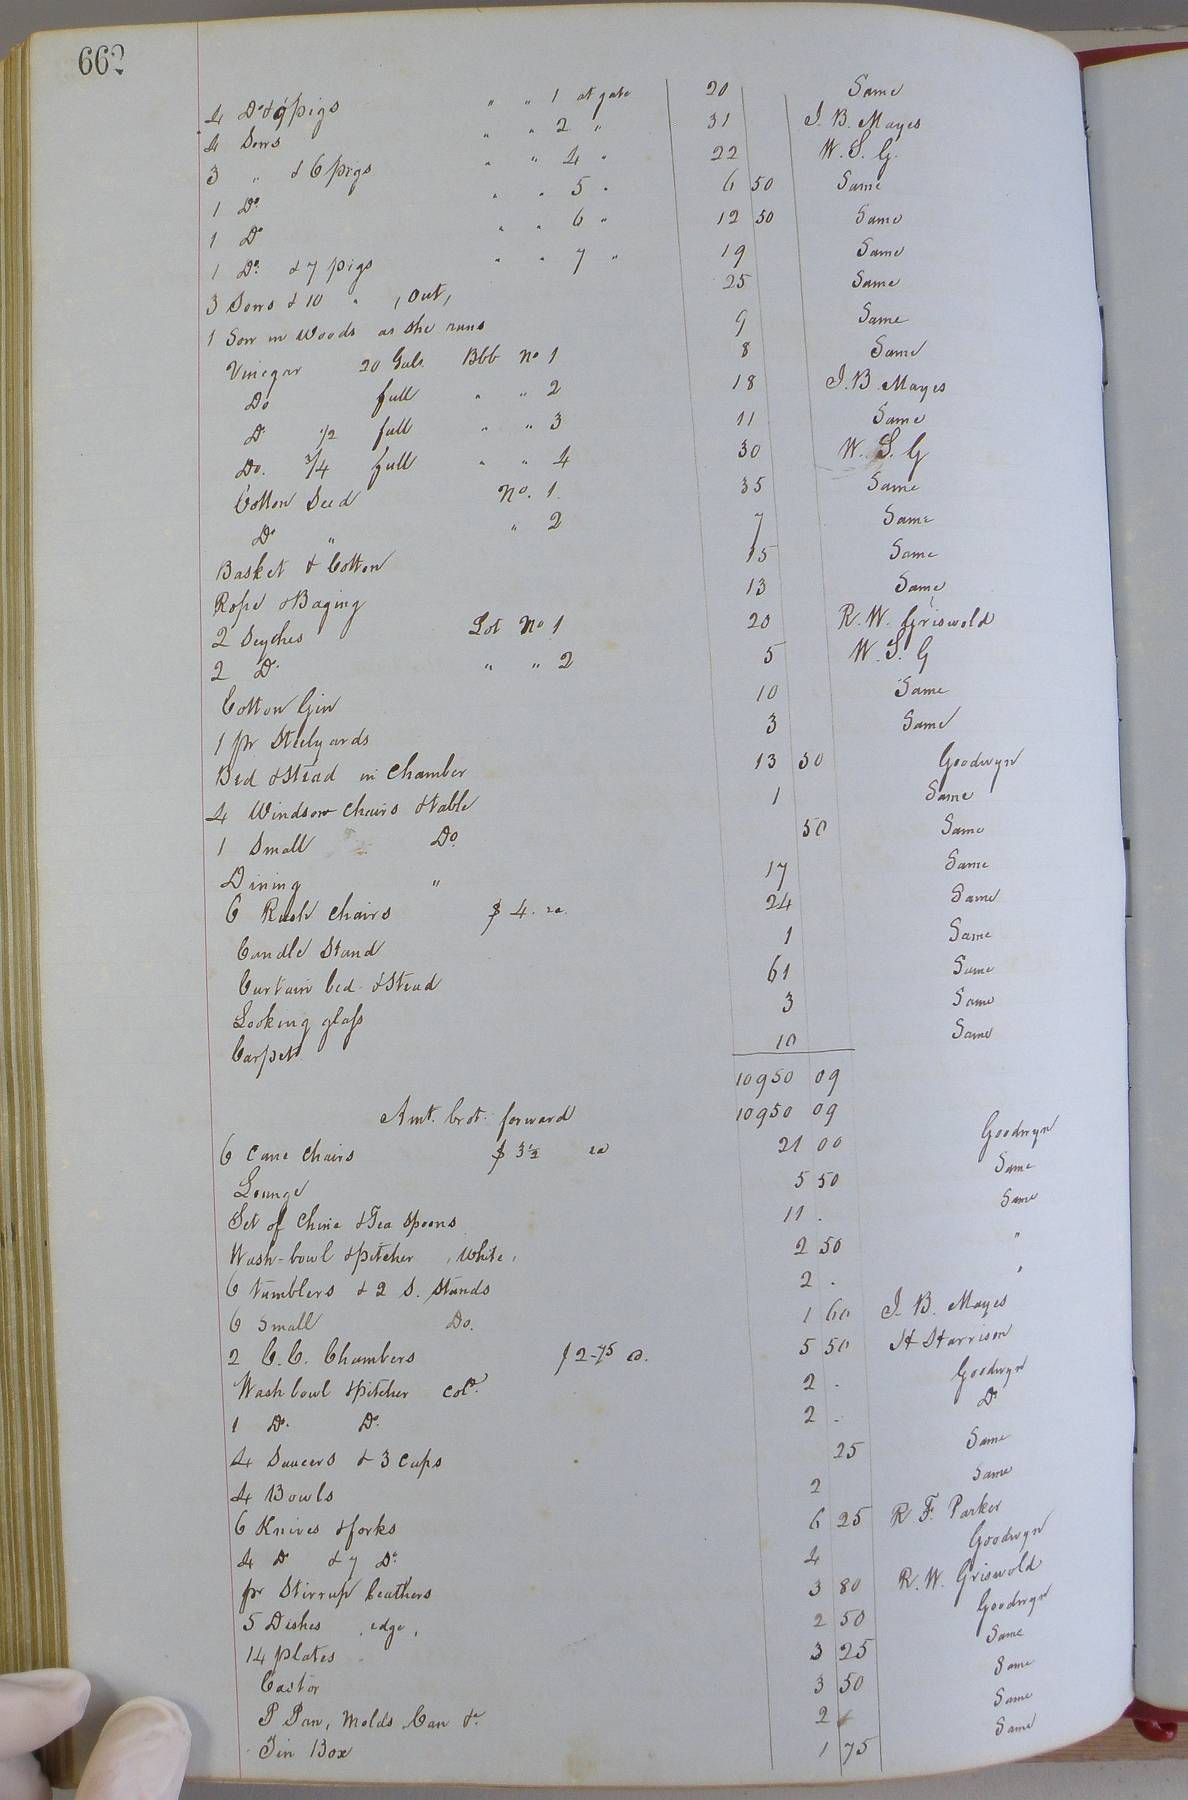 662
4 Do & 9 pigs " " 1 at gate 20 Same
4 Sows " " 2 " 31 J. B. Mayes
3 " & 6 pigs " " 4 " 22 W. S. G.
1 Do " " 5 " 6 50 Same
1 Do " " 6 " 12 50 Same
1 Do & 7 pigs " " 7 " 19 Same
3 Sows & 10 " , Out, 25 Same
1 Sow in Woods as she runs 9 Same
Vinegar 20 Gals. Bbb No 1 8 Same
Do full " " 2 18 J. B. Mayes
D 1/2 full " " 3 11 Same
Do. 3/4 full " " 4 30 W. S. G
Cotton Seed No. 1 35 Same
Do " " 2 7 Same
Basket & Cotton 15 Same
Rope & Baging 13 Same
2 Scyches Lot No 1 20 R. W. Griswold
2 D. " " 2 5 W. S. G
Cotton Gin 10 Same
1 pr Steelyards 3 Same
Bed & Stead in Chamber 13 50 Goodwyn
4 Windsor Chairs & table 1 Same
1 Small Do. 50 Same
Dining " 17 Same
6 Rush Chairs $ 4. ea. 24 Same
Candle Stand 1 Same
Curtain bed & Stead 61 Same
Looking glass 3 Same
Carpet 10 Same
10950 09
Amt. brot. forward 10950 09
6 Cane Chairs $ 3 1/2 ea 21 00 Goodwyn
Lounge 5 50 Same
Set of Chine & Tea Spoons 11 . Same
Wash-bowl & pitcher , White , 2 50 "
6 tumblers & 2 S. Stands 2 . "
6 Small Do. 1 60 J. B. Mayes
2 C. C. Chambers $ 2-75 ea. 5 50 H Harrison
Wash bowl & pitcher cold. 2 . Goodwyn
1 Do. Do. 2 . Do
4 Saucers & 3 Cups 25 Same
4 Bowls 2 Same
6 Knives & forks 6 25 R. F. Parker
4 D & 7 Do. 4 Goodwyn
pr Stirrup Leathers 3 80 R. W. Griswold
5 Dishes , edge , 2 50 Goodwyn
14 plates 3 25 Same
Castor 3 50 Same
P Pan, Molds Can &c 2 Same
Tin Box 1 75 Same